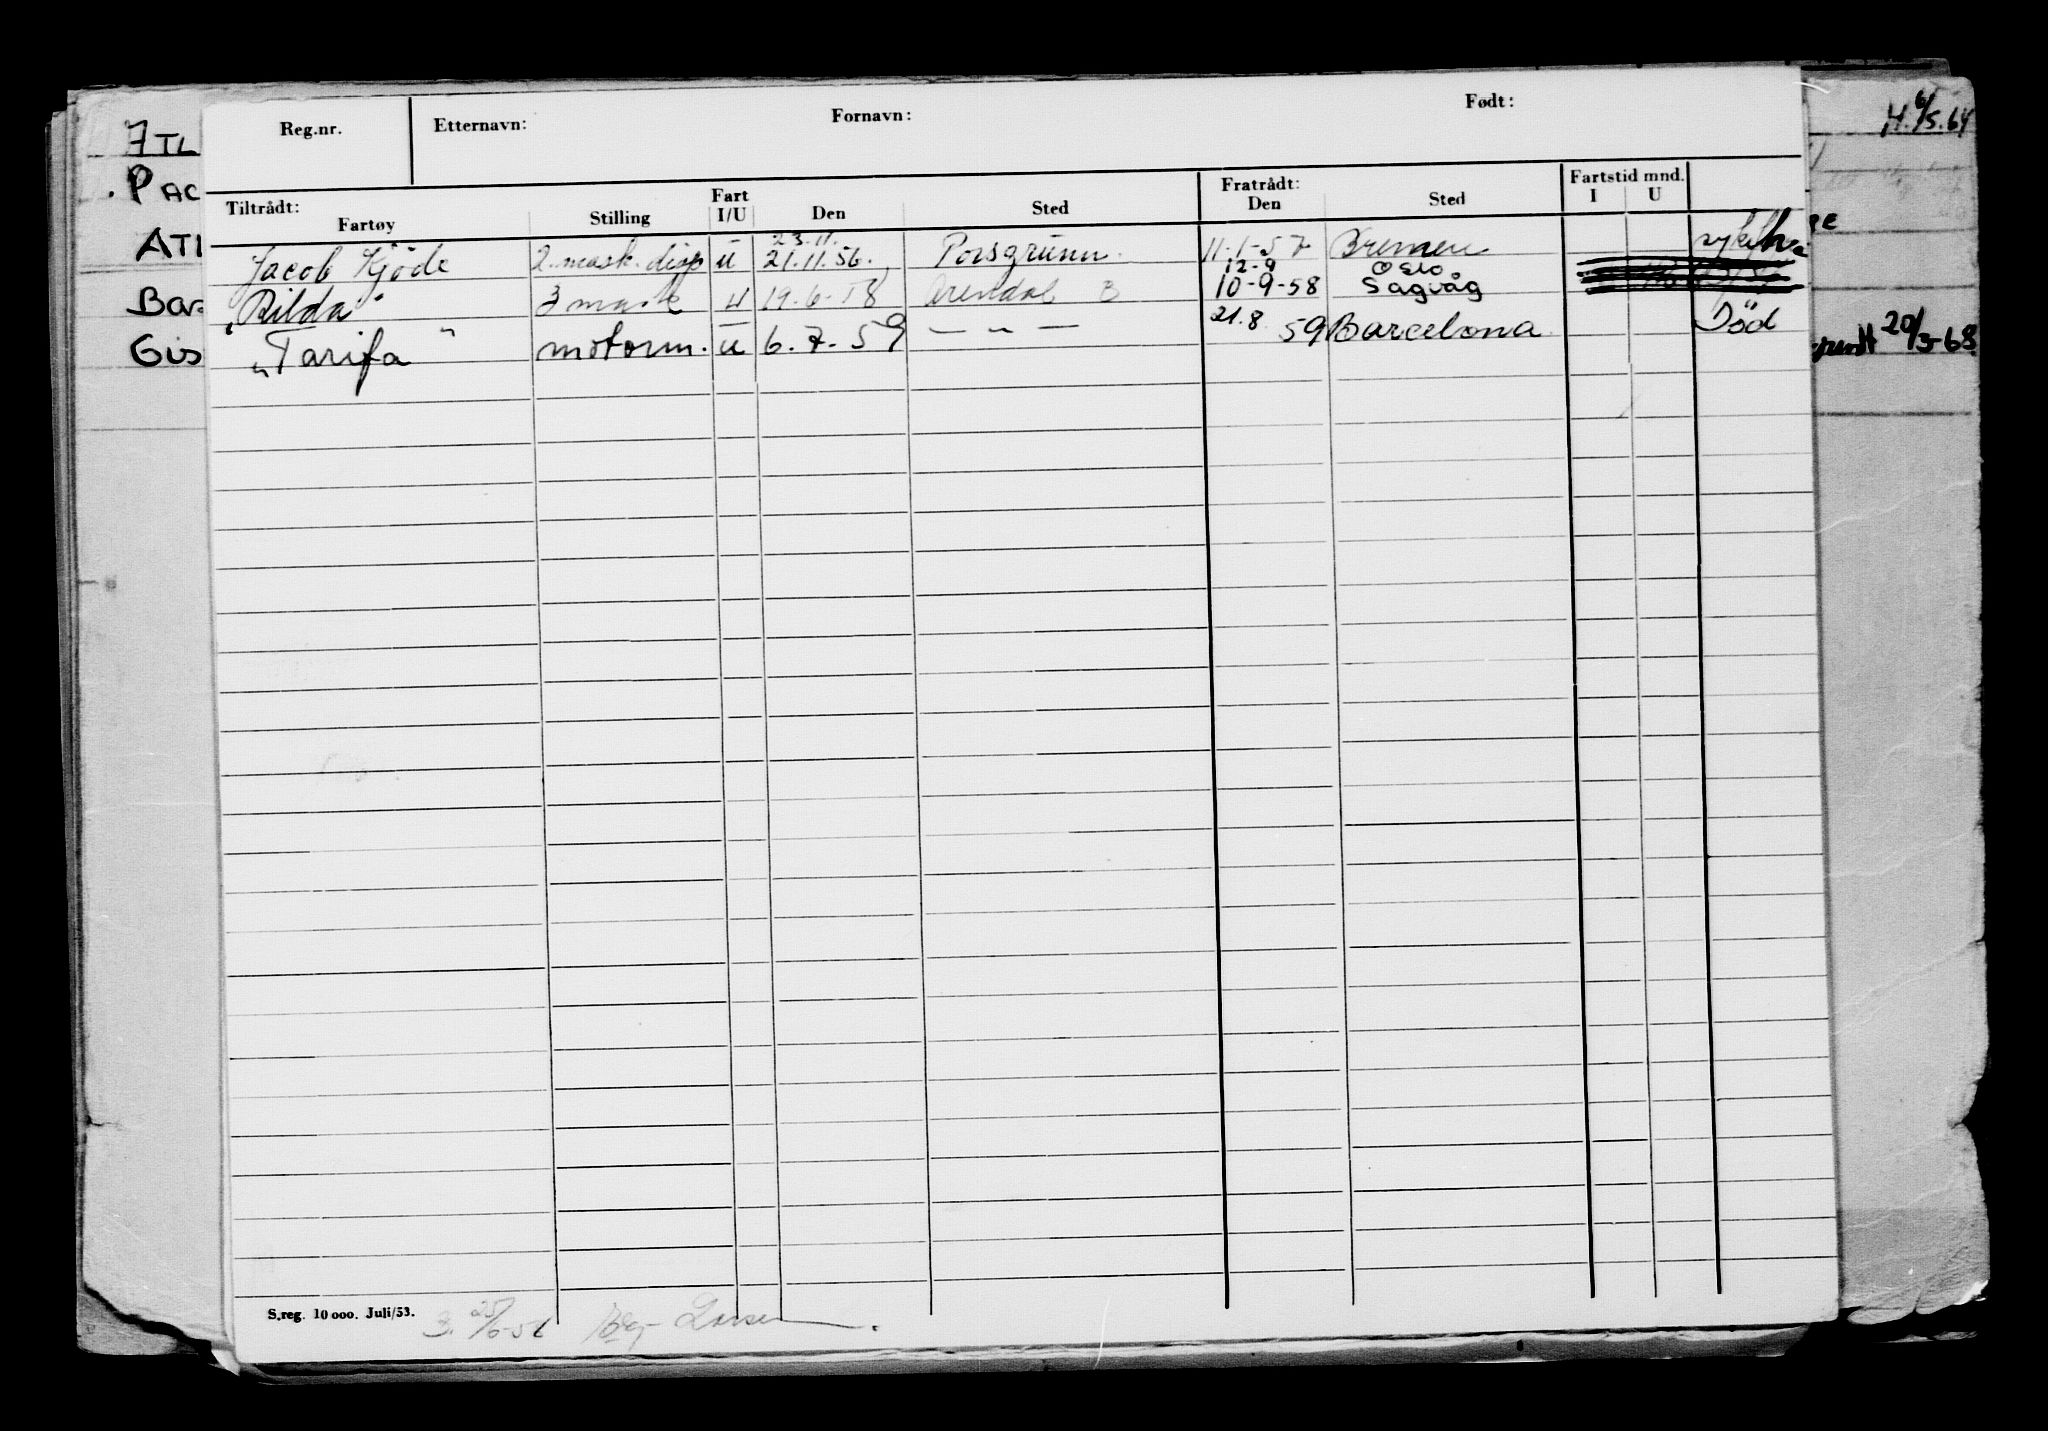 Reg.nr. Etternavn: Fornavn: Født:
Tiltrådt: Fart Fratrådt: Fartstid mnd.
Fartøy Stilling I/U Den Sted Den Sted I U
23.11.
Jacob Kjöde 2. mask. disp u 21.11.56. Porsgrunn. 11-1-57 Bremen
12-9 Oslo
"Rilda" 3 mask u 19.6.58 Arendal B 10-9-58 Sagvåg
"Tarifa" motorm. u 6.7.59 — " — 21.8 59 Barcelona Död
S.reg. 10 000. Juli/53.
7TL
. PAC
ATL
Bar
Gis
H. 6/5.64
20/3-68